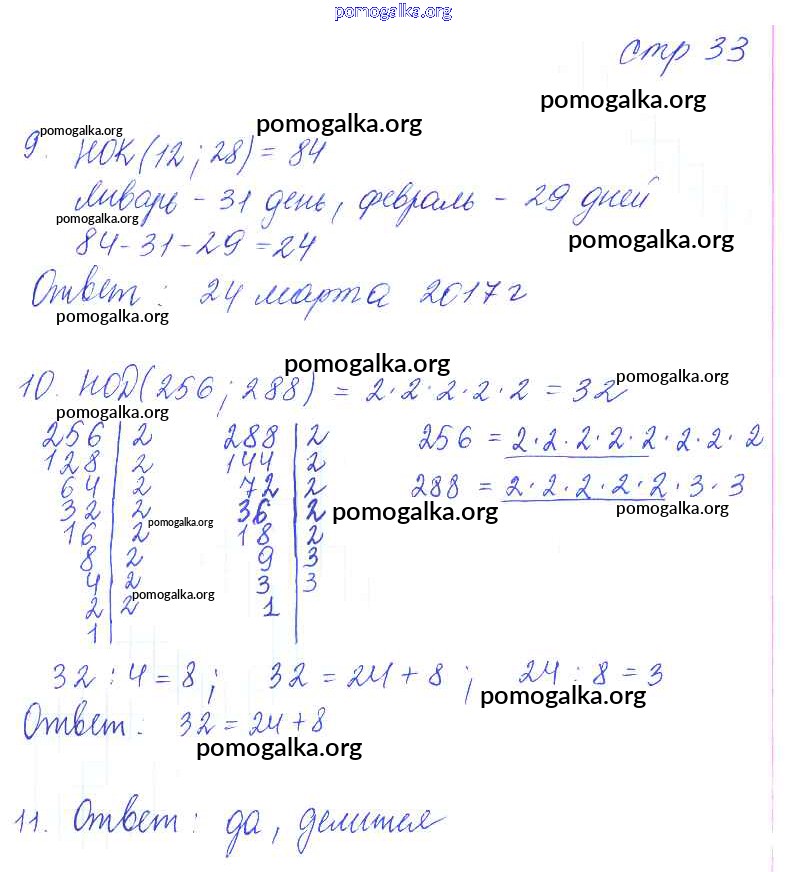 pomogalka.org
стр 33
pomogalka.org
pomogalka.org pomogalka.org
9. НОК (12 ; 28) = 84
Январь - 31 день, февраль - 29 дней
pomogalka.org
84-31-29 = 24 pomogalka.org
Ответ : 24 марта 2017 г
pomogalka.org
pomogalka.org
10. НОД (256 ; 288) = 2·2·2·2·2 = 32 pomogalka.org
pomogalka.org
256 | 2 288 | 2 256 = 2·2·2·2·2·2·2·2
128 | 2 144 | 2
64 | 2 72 | 2 288 = 2·2·2·2·2·3·3
32 | 2 36 | 2 pomogalka.org pomogalka.org
pomogalka.org
16 | 2 18 | 2
8 | 2 9 | 3
4 | 2 3 | 3
pomogalka.org
2 | 2 1
1
32 : 4 = 8 ; 32 = 24 + 8 ; 24 : 8 = 3
pomogalka.org
Ответ : 32 = 24 + 8
pomogalka.org
11. Ответ : да, делится